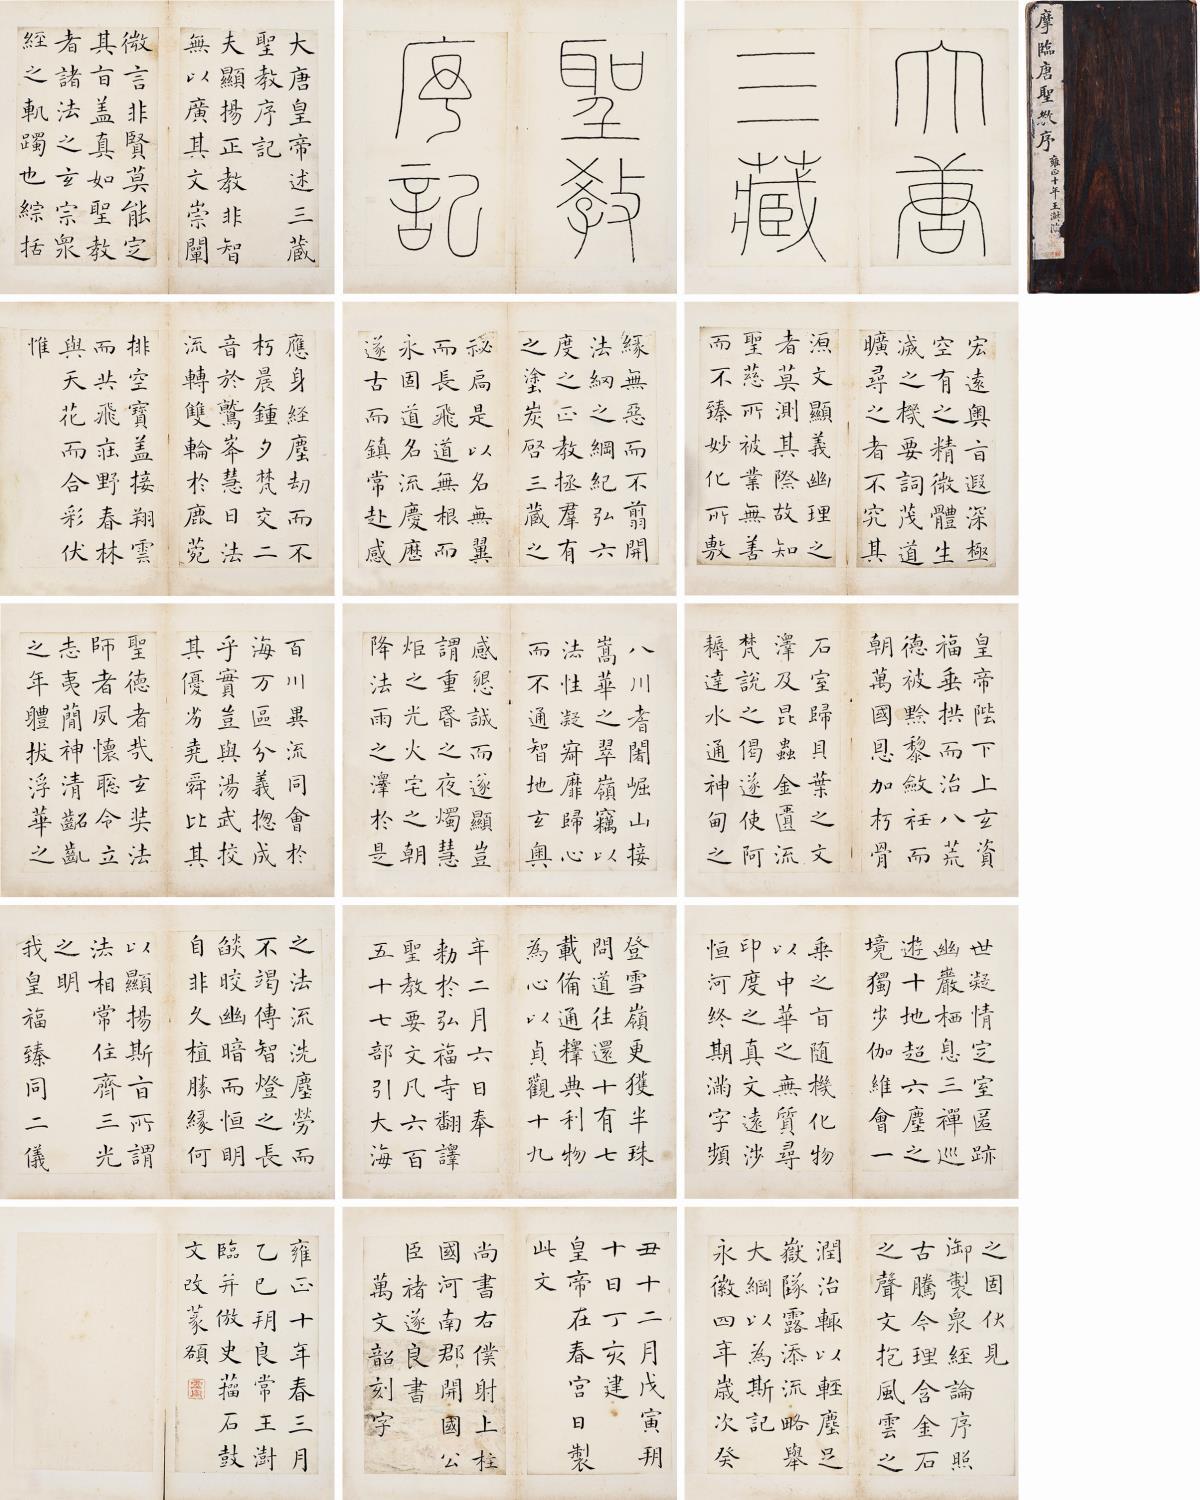 摩臨唐聖教序
雍正十年王澍臨
大唐
三藏
聖教
序記
大唐皇帝述三藏
聖教序記
夫顯揚正教非智
無以廣其文崇闡
微言非賢莫能定
其旨盖真如聖教
者諸法之玄宗衆
經之軌躅也綜括
宏遠奧旨遐深極
空有之精微體生
滅之機要詞茂道
曠尋之者不究其
源文顯義幽理之
者莫測其際故知
聖慈所被業無善
而不臻妙化所敷
緣無惡而不翦開
法網之綱紀弘六
度之正教拯羣有
之塗炭啓三藏之
祕扃是以名無翼
而長飛道無根而
永固道名流慶歷
遂古而鎮常赴感
應身經塵劫而不
朽晨鍾夕梵交二
音於鷲峯慧日法
流轉雙輪於鹿菀
排空寶盖接翔雲
而共飛莊野春林
與天花而合彩伏
惟
皇帝陛下上玄資
福垂拱而治八荒
德被黔黎斂衽而
朝萬國恩加朽骨
石室歸貝葉之文
澤及昆蟲金匱流
梵說之偈遂使阿
耨達水通神甸之
八川耆闍崛山接
嵩華之翠嶺竊以
法性凝寂靡歸心
而不通智地玄奧
感懇誠而遂顯豈
謂重昏之夜燭慧
炬之光火宅之朝
降法雨之澤於是
百川異流同會於
海万區分義揔成
乎實豈與湯武挍
其優劣堯舜比其
聖德者㢤玄奘法
師者夙懷聡令立
志夷蕑神清齠齓
之年體拔浮華之
世凝情定室匿跡
幽巖栖息三禪巡
遊十地超六塵之
境獨步伽維會一
乘之旨随機化物
以中華之無質尋
印度之真文遠涉
恒河終期滿字頻
登雪嶺更獲半珠
問道往還十有七
載備通釋典利物
為心以貞觀十九
年二月六日奉
勅於弘福寺翻譯
聖教要文凡六百
五十七部引大海
之法流洗塵勞而
不竭傳智燈之長
燄皎幽暗而恒明
自非久植勝緣何
以顯揚斯旨所謂
法相常住齊三光
之明
我皇福臻同二儀
之固伏見
御製衆經論序照
古騰今理含金石
之聲文抱風雲之
潤治輒以輕塵足
嶽墜露添流略舉
大綱以為斯記
永徽四年歲次癸
丑十二月戊寅朔
十日丁亥建
皇帝在春宮日製
此文
尚書右僕射上柱
國河南郡開國公
臣褚遂良書
萬文韶刻字
雍正十年春三月
乙巳朔良常王澍
臨并倣史籒石鼓
文改篆頟